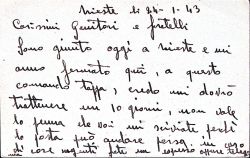 Trieste li 24-1.43
Carissimi Genitori e fratelli
Sono giunto oggi a Trieste e mi
anno fermato qui, a questo
comando tappa, credo mi dovrò
trattenere un 10 giorni, non vale
la pena che voi mi scriviate perchè
la posta può andare persa, in caso
di cose urgenti fate un espresso oppure telegr